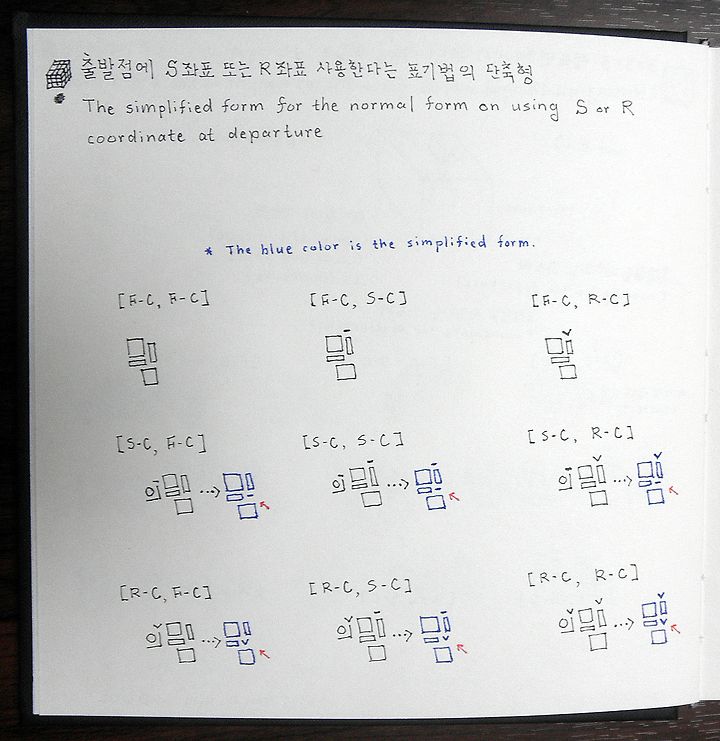 출발점에 S좌표 또는 R좌표 사용한다는 표기법의 단축형
The simplified form for the normal form on using S or R
coordinate at departure
* The blue color is the simplified form.
[F-C, F-C] [F-C, S-C] [F-C, R-C]
[S-C, F-C] [S-C, S-C] [S-C, R-C]
[R-C, F-C] [R-C, S-C] [R-C, R-C]